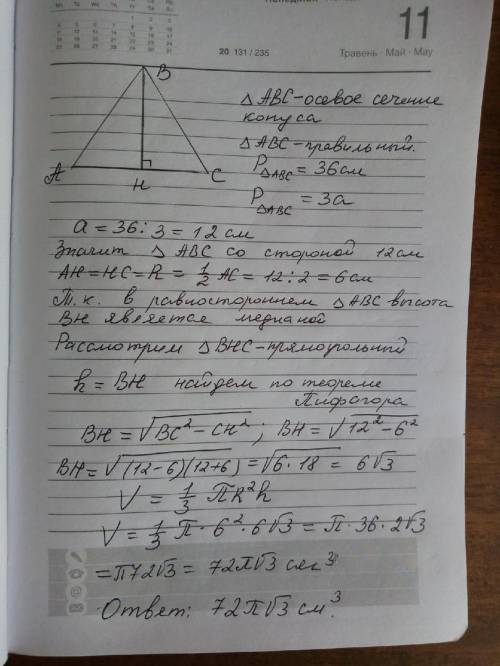 11
20 131 / 235
Травень · Май · May
B
A
H
C
△ ABC - осевое сечение
конуса
△ ABC - правильный.
P△ABC = 36 см
P△ABC = 3a
a = 36 : 3 = 12 см
Значит △ ABC со стороной 12 см
AH = HC = R = 1/2 AC = 12 : 2 = 6 см
Т.к. в равностороннем △ ABC высота
BH является медианой
Рассмотрим △ BHC - прямоугольный
h = BH найдем по теореме
Пифагора
BH = √BC² - CH² ; BH = √12² - 6²
BH = √(12-6)(12+6) = √6 · 18 = 6√3
V = 1/3 πR²h
V = 1/3 π · 6² · 6√3 = π · 36 · 2√3
= π72√3 = 72π√3 см³
Ответ: 72π√3 см³.